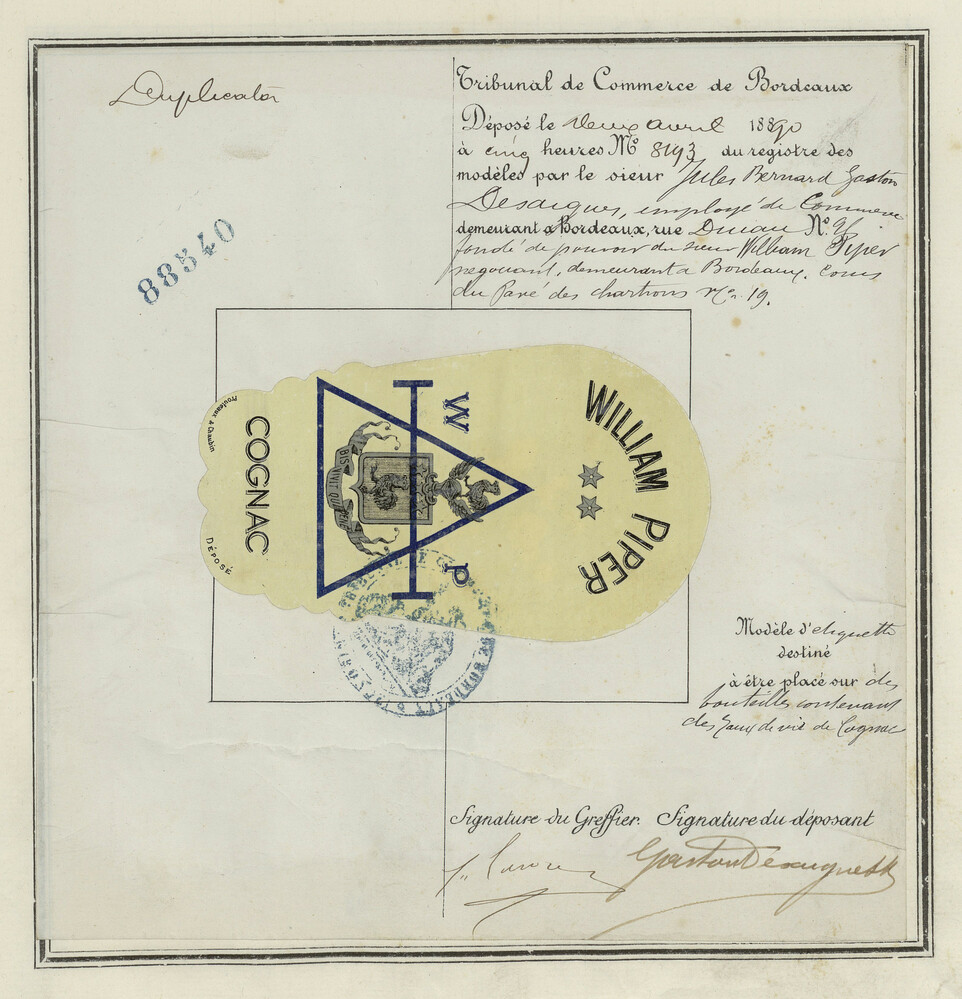 Duplicata
Tribunal de Commerce de Bordeaux
Déposé le deux avril 1890
à cinq heures Nº 8193 du registre des
modèles par le sieur Jules Bernard Gaston
Desaigues, employé de Commerce
demeurant à Bordeaux, rue Nº 91
fondé de pouvoir du sieur William Piper
négociant, demeurant à Bordeaux, cours
du Pavé des chartrons Nº 19.
88540
WILLIAM PIPER
W P
BIS VIVIT QUI BENE
COGNAC
DÉPOSÉ
TRIBUNAL DE COMMERCE DE BORDEAUX
Modèle d'étiquette
destiné
à être placé sur des
bouteilles contenant
des Eaux de vie de Cognac
Signature du Greffier. Signature du déposant